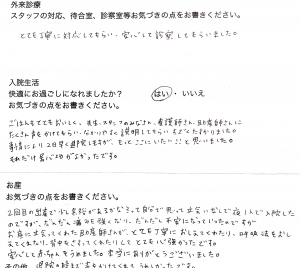 外来診療
スタッフの対応、待合室、診察室等お気づきの点をお書きください。
とても丁寧に対応してもらい、安心して診察してもらいました。
入院生活
快適にお過ごしになれましたか？ はい・いいえ
お気づきの点をお書きください。
ごはんもとてもおいしく、先生、スタッフのみなさん、看護師さん、助産師さんに
たくさん声をかけてもらい、わかりやすく説明してもらいすごくたすかりました。
事情により2日早く退院しますが、もっとここにいたいこと思いました。
それだけ居心地がよかったです。
お産
お気づきの点をお書きください。
2回目の出産で少し余裕があるかなぁって自分で思って出産に
のですが、だんだん痛みも強くなり、だんだん不安になっていったのですが
お産に立会ってくれた助産師さんが、とても丁寧におしえてくれたり、呼吸法をおし
えてくれたり、背中をさすってくれたりしてとても心強かったです。
安心して赤ちゃんをうめました。本当にありがとうございました。
その他、退院の時まで声をかけてもらううれしかったです。